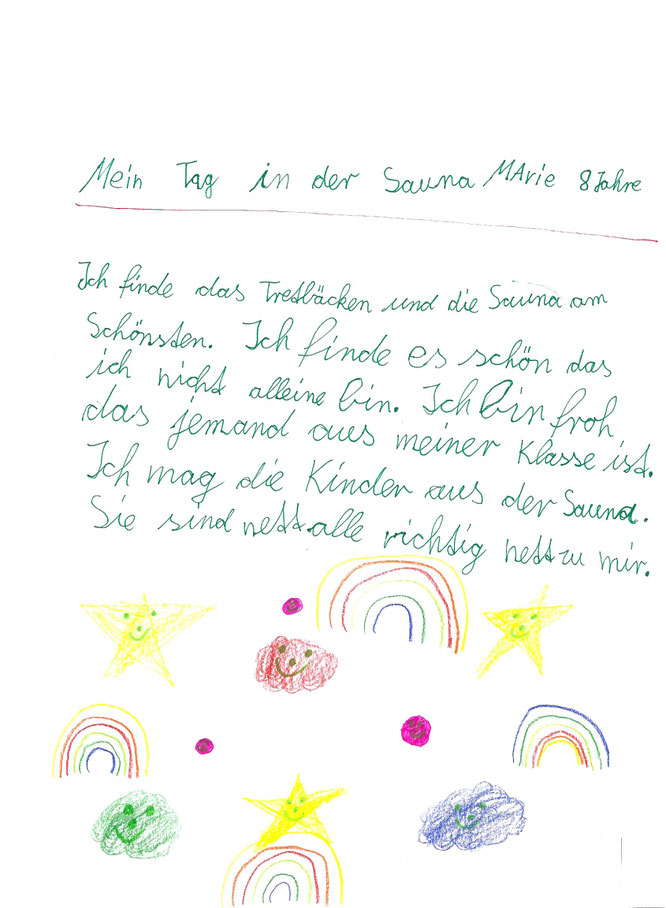 Mein Tag in der Sauna MArie 8 Jahre
Ich finde das Tretbäcken und die Sauna am
Schönsten. Ich finde es schön das
ich nicht alleine bin. Ich bin froh
das jemand aus meiner Klasse ist.
Ich mag die Kinder aus der Sauna.
Sie sind nett alle richtig nett zu mir.